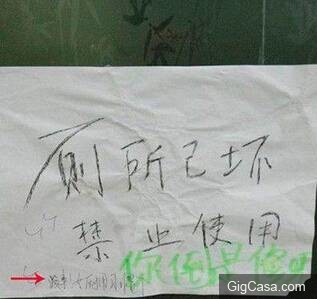 厕所已坏
禁止使用
你倒是修呀
GigCasa.com